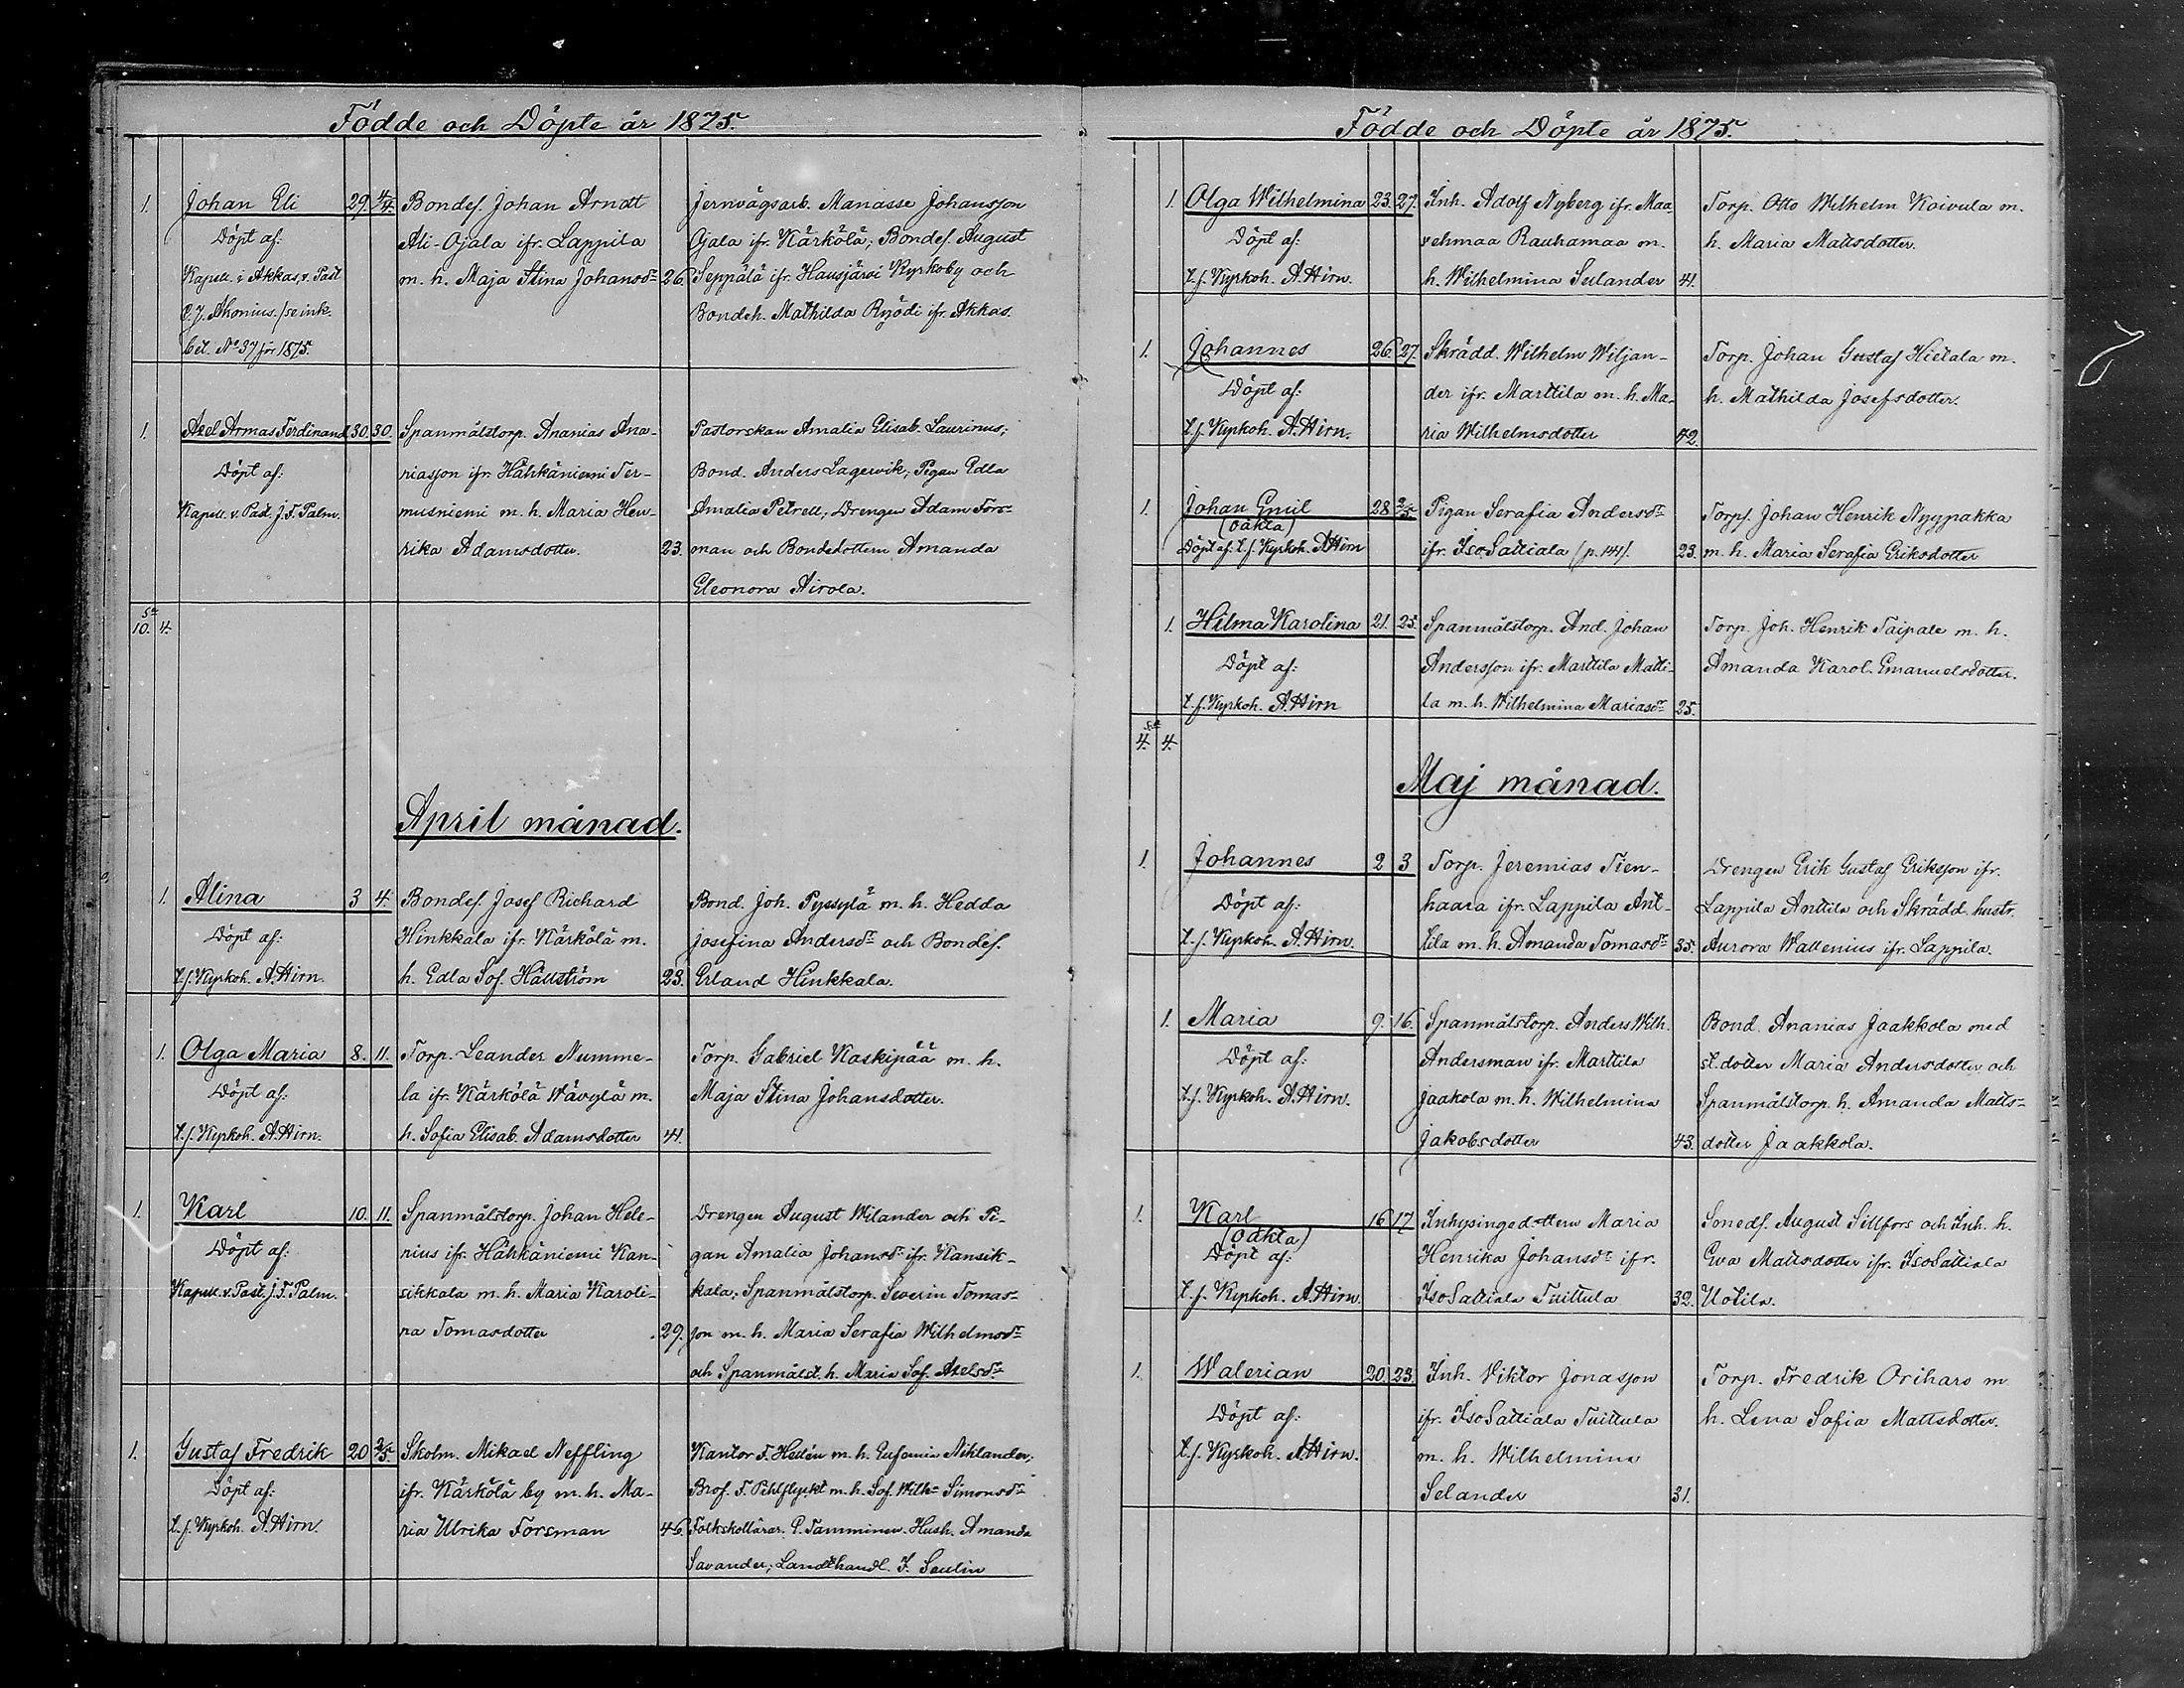 Födde och Döpte år 1875.
1. Johan Eli 29. 1/4. Bondes. Johan Arnott Jernvägsarb. Manasse Johansson
Döpt af: Ali-Ojala ifr. Lappila Ojala ifr. Kärkölä; Bondes. August
Kapell. i Akkas, v. Past m. h. Maja Stina Johansdr 26. Seppälä ifr. Hausjärvi Kyrkoby och
C. J. Ahonius. /se ink. Bondeh. Mathilda Röjdi ifr. Akkas.
bet. No 37 för 1875.
1. Axel Armas Ferdinand 30. 30. Spanmålstorp. Ananias Ana- Pastorskan Amalia Elisab. Laurinus;
Döpt af: niasson ifr. Hähkäniemi Ter- Bond. Anders Lagervik; Pigan Edla
Kapell. v. Past. J. F. Palm. musniemi m. h. Maria Hen- Amalia Petrell; Drengen Adam Fors-
rika Adamsdotter. 23. man och Bondedottern Amanda
Eleonora Airola.
Sa
10. 4.
April månad.
1. Alina 3 4. Bondes. Josef Richard Bond. Joh. Pyssylä m. h. Hedda
Döpt af: Hinkkala ifr. Kärkölä m. Josefina Andersdr och Bondes.
t. f. Kyrkoh. A. Hirn. h. Edla Sof. Hällström 23. Erland Hinkkala.
1. Olga Maria 8. 11. Torp. Leander Numme- Torp. Gabriel Koskipää m. h.
Döpt af: la ifr. Kärkölä Wävylä m. Maja Stina Johansdotter.
t. f. Kyrkoh. A. Hirn. h. Sofia Elisab. Adamsdotter 41.
1. Karl 10. 11. Spanmålstorp. Johan Hele- Drengen August Wilander och Pi-
Döpt af: nius ifr. Hähkäniemi Kan- gan Amalia Johansdr ifr. Kansik-
Kapell. v. Past. J. F. Palm. sikkala m. h. Maria Karoli- kala; Spanmålstorp. Severin Tomas-
na Tomasdotter 29. son m. h. Maria Serafia Wilhelmsdr
och Spanmålst. h. Maria Sof. Axelsdr
1. Gustaf Fredrik 20 2/5. Skolm. Mikael Neffling Kantor F. Hedén m. h. Eufemia Niklander;
Döpt af: ifr. Kärkölä by m. h. Ma- Brof. F. Pihlflyckt m. h. Sof. Wilh- Simonsdr
t. f. Kyrkoh. A. Hirn. ria Ulrika Forsman 46. Folkskollärar. P. Tamminen. Hush. Amanda
Savander; Landthandl. J. Saulin
Födde och Döpte år 1875.
1. Olga Wilhelmina 23. 27. Inh. Adolf Nyberg ifr. Maa- Torp. Otto Wilhelm Koivula m.
Döpt af: vehmaa Rauhamaa m. h. Maria Mattsdotter.
t. f. Kyrkoh. A. Hirn. h. Wilhelmina Sulander 41.
1. Johannes 26. 27. Skrädd. Wilhelm Wiljan- Torp. Johan Gustaf Hietala m.
Döpt af: der ifr. Marttila m. h. Ma- h. Mathilda Josefsdotter.
t. f. Kyrkoh. A. Hirn. ria Wilhelmsdotter 42.
1. Johan Emil 28 2/5. Pigan Serafia Andersdr Torps. Johan Henrik Nyypakka
(oäkta)
Döpt af: t. f. Kyrkoh. A. Hirn ifr. IsoSattiala (p. 141). 23. m. h. Maria Serafia Eriksdotter
1. Hilma Karolina 21. 25. Spanmålstorp. And. Johan Torp. Joh. Henrik Taipale m. h.
Döpt af: Andersson ifr. Marttila Matti- Amanda Karol. Emanuelsdotter.
t. f. Kyrkoh. A. Hirn la m. h. Wilhelmina Mariasdr 25.
Sa
4. 4.
Maj månad.
1. Johannes 2 3 Torp. Jeremias Tien- Drengen Erik Gustaf Eriksson ifr.
Döpt af: haara ifr. Lappila Ant- Lappila Anttila och Skrädd. hustr.
t. f. Kyrkoh. A. Hirn. tila m. h. Amanda Tomasdr 35. Aurora Wallenius ifr. Lappila.
1. Maria 9. 16. Spanmålstorp. Anders Wilh. Bond. Ananias Jaakkola med
Döpt af: Andersman ifr. Marttila st.dotter Maria Andersdotter och
t. f. Kyrkoh. A. Hirn. Jaakola m. h. Wilhelmina Spanmålstorp. h. Amanda Matts-
Jakobsdotter 43. dotter Jaakkola.
1. Karl 16 17 Inhysingedottern Maria Sonedf. August Sillfors och Inh. h.
(oäkta)
Döpt af: Henrika Johansdr ifr. Eva Mattsdotter ifr. IsoSattiala
t. f. Kyrkoh. A. Hirn. IsoSattiala Tuittula 32. Uotila.
1. Walerian 20. 23. Inh. Viktor Jonasson Torp. Fredrik Oriharo m
Döpt af: ifr. IsoSattiala Tuittula h. Lena Sofia Mattsdotter.
t. f. Kyrkoh. A. Hirn. m. h. Wilhelmina
Selander 31.